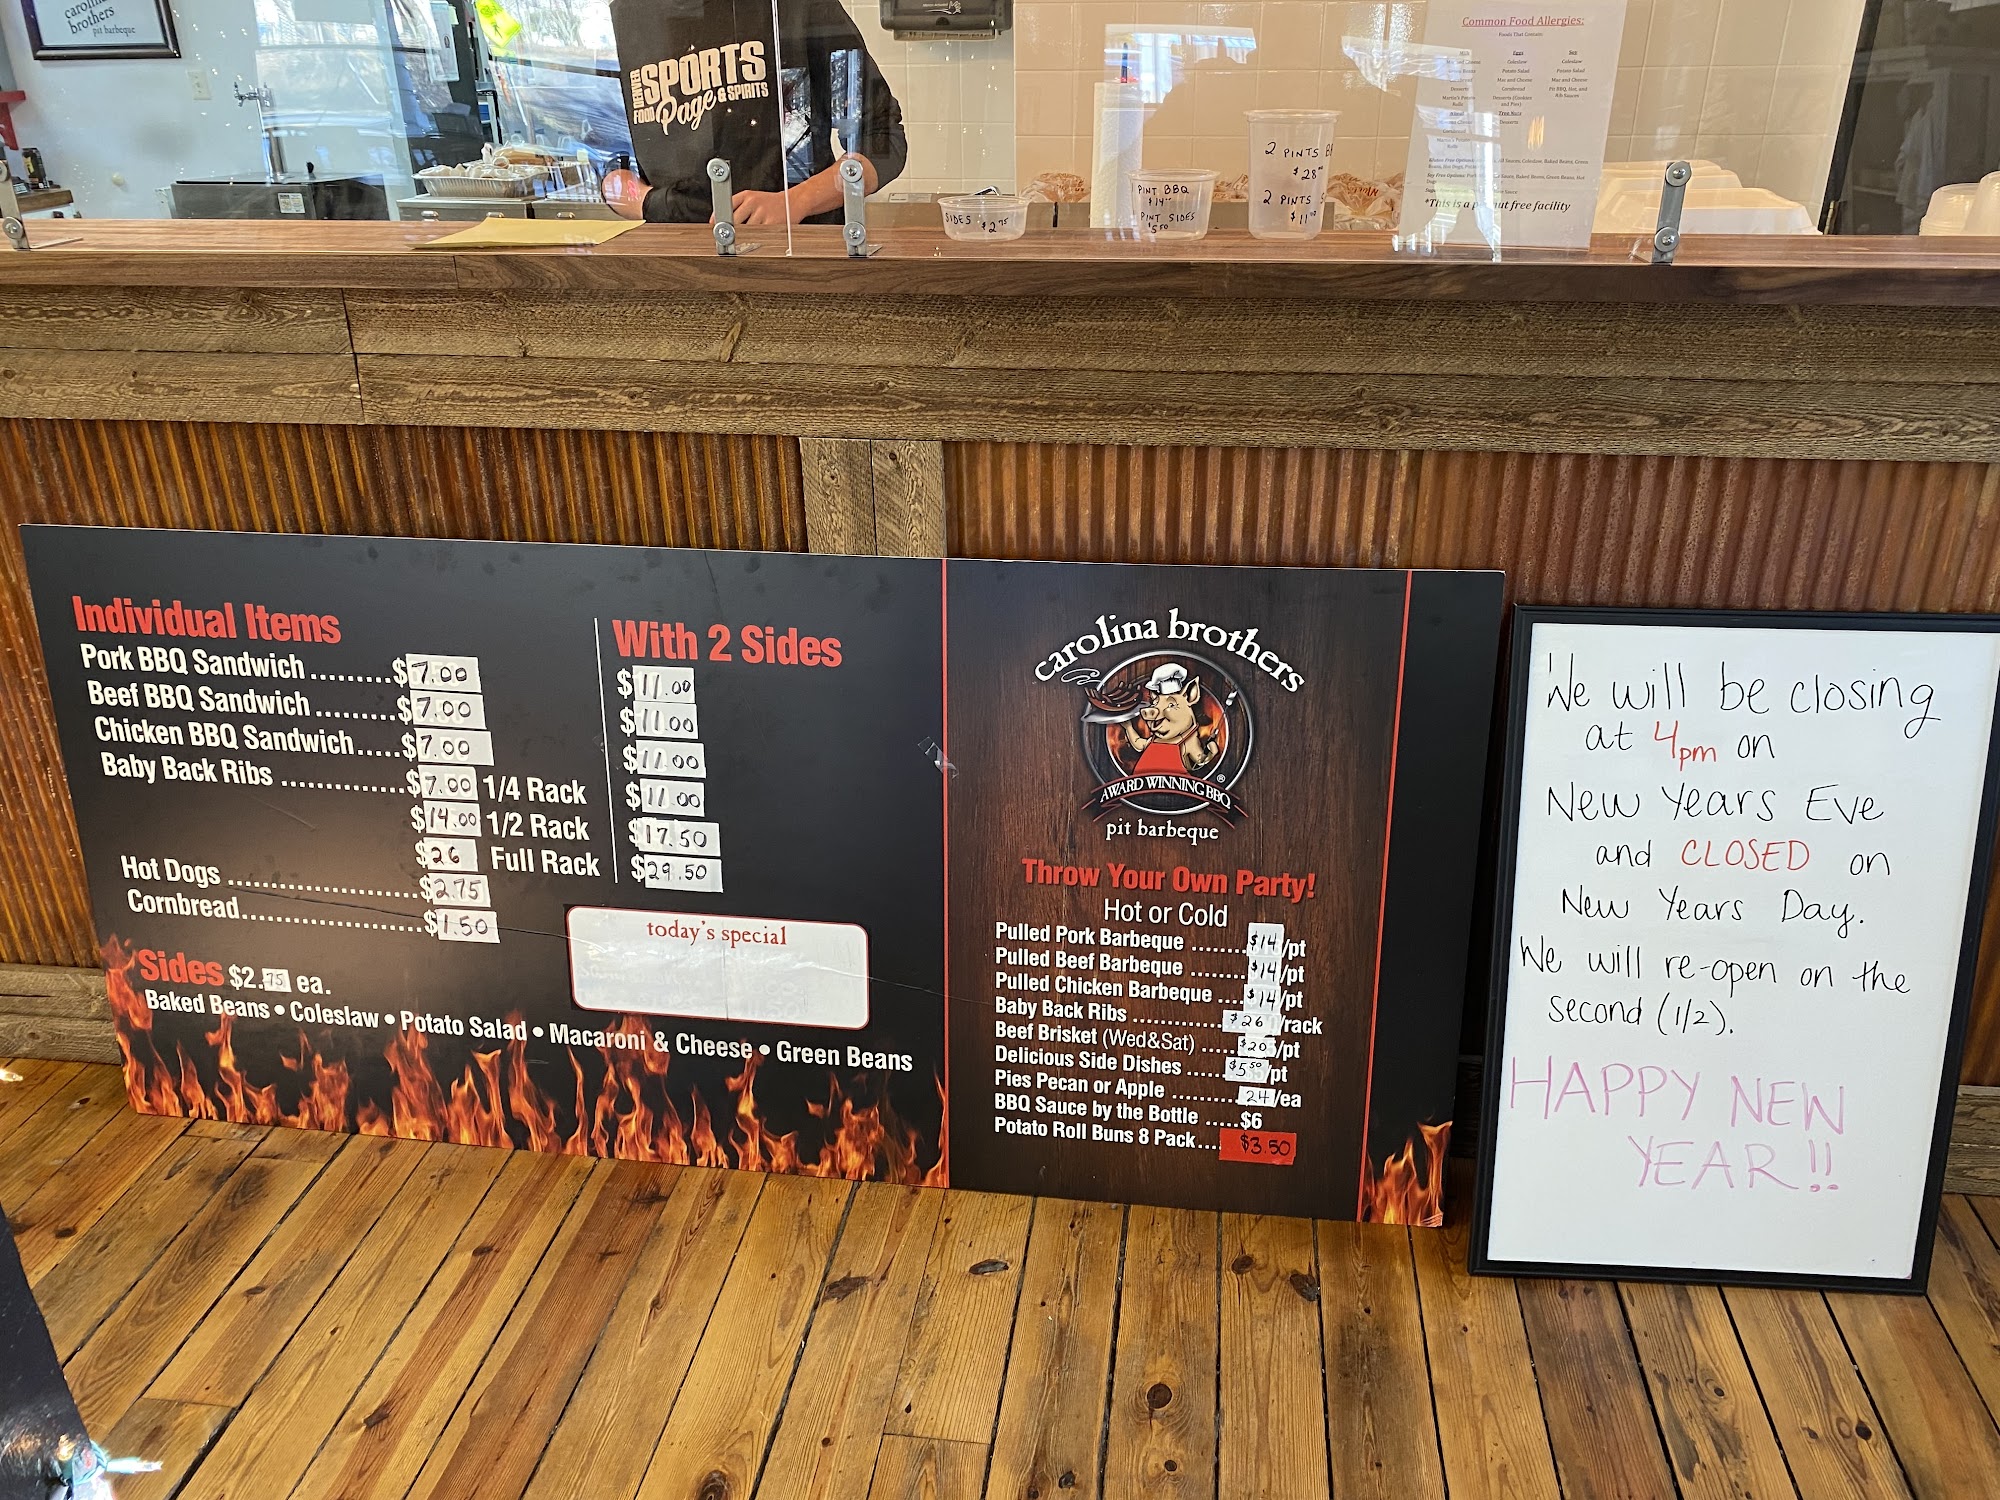 carolina
brothers
pit barbeque
DENVER
SPORTS
Page
FOOD & SPIRITS
SIDES $2.75
1 PINT BBQ
$14
PINT SIDES
$5.50
2 PINTS
$28
2 PINTS
$11
Common Food Allergies:
Foods That Contain:
Eggs
Soy
Coleslaw
Coleslaw
Potato Salad
Potato Salad
Mac and Cheese
Mac and Cheese
Cornbread
Desserts
Tree Nuts
Desserts
*This is a nut free facility
Individual Items
With 2 Sides
Pork BBQ Sandwich .........$7.00 $11.00
Beef BBQ Sandwich .........$7.00 $11.00
Chicken BBQ Sandwich.....$7.00 $11.00
Baby Back Ribs ..............$7.00 1/4 Rack $11.00
$14.00 1/2 Rack $17.50
$26 Full Rack $29.50
Hot Dogs .....................$2.75
Cornbread.....................$1.50
today's special
Sides $2.75 ea.
Baked Beans • Coleslaw • Potato Salad • Macaroni & Cheese • Green Beans
carolina brothers
AWARD WINNING BBQ
®
pit barbeque
Throw Your Own Party!
Hot or Cold
Pulled Pork Barbeque .......$14/pt
Pulled Beef Barbeque .......$14/pt
Pulled Chicken Barbeque ....$14/pt
Baby Back Ribs ............$26/rack
Beef Brisket (Wed&Sat) .....$20/pt
Delicious Side Dishes ......$5.50/pt
Pies Pecan or Apple ..........24/ea
BBQ Sauce by the Bottle .....$6
Potato Roll Buns 8 Pack... $3.50
We will be closing
at 4pm on
New Years Eve
and CLOSED on
New Years Day.
We will re-open on the
second (1/2).
HAPPY NEW
YEAR!!